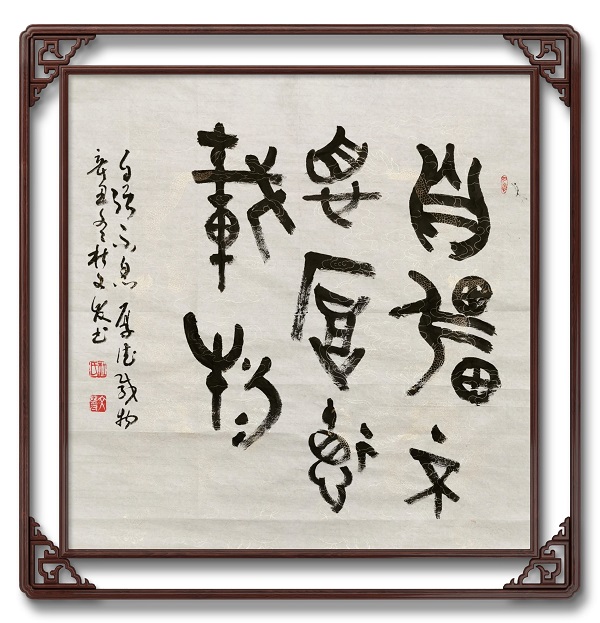 自强不
息厚德
載物
自强不息 厚德载物
辛丑冬杜文发书